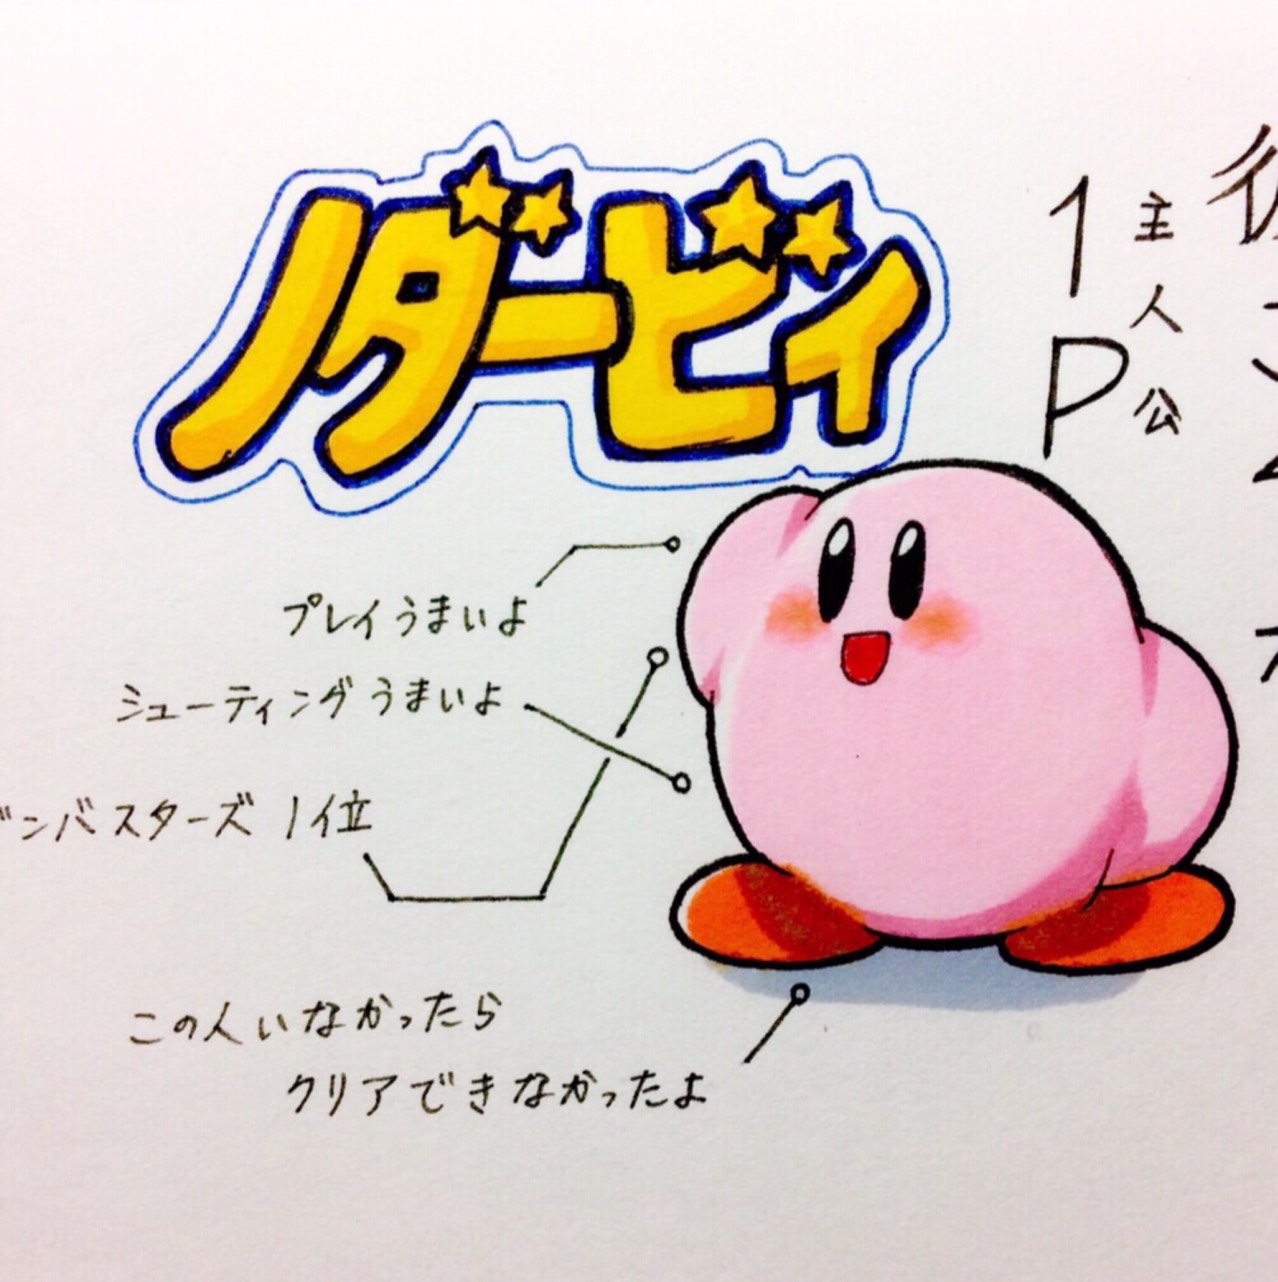 ノダービィ
1P
主人公
プレイうまいよ
シューティングうまいよ
ンバスターズ 1位
この人いなかったら
クリアできなかったよ